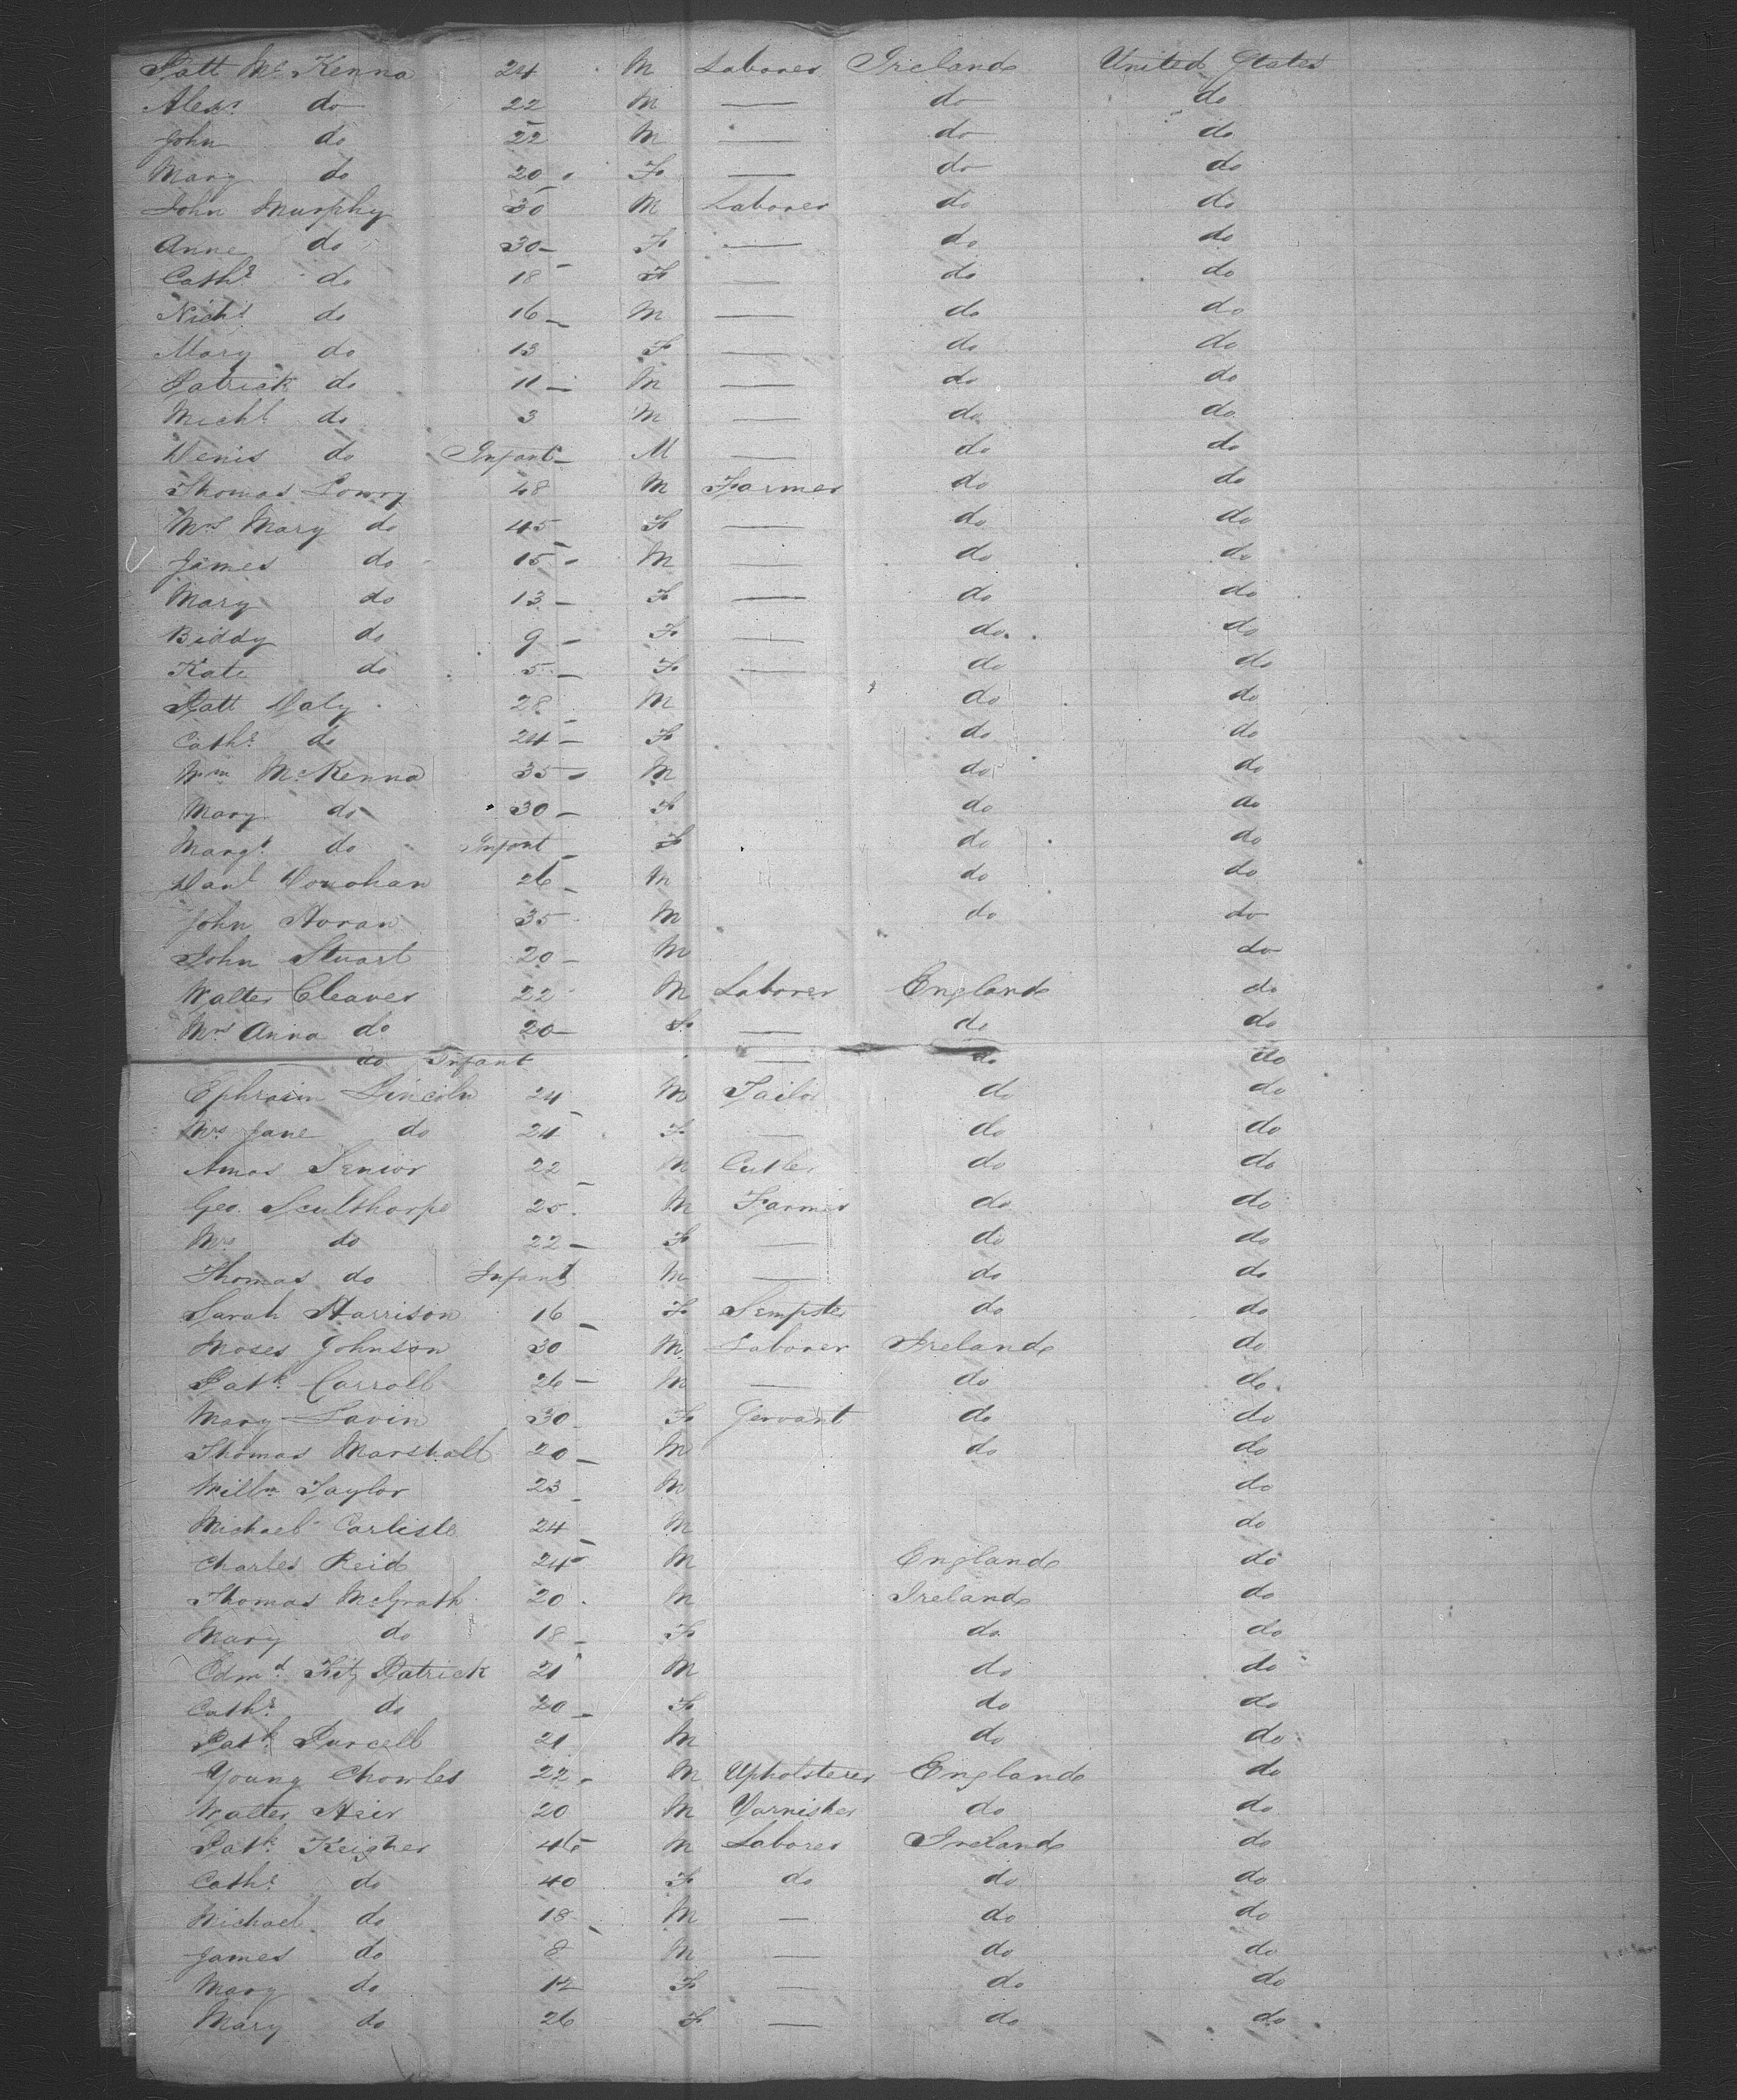 Patt McKenna 24 M Laborer Ireland United States
Alexr do 22 M — do do
John do 22 M — do do
Mary do 20 F — do do
John Murphy 30 M Laborer do do
Anne do 30 F — do do
Cathe do 18 F — do do
Nichs do 16 M — do do
Mary do 13 F — do do
Patrick do 11 M — do do
Michl do 3 M — do do
Denis do Infant M — do do
Thomas Lowry 48 M Farmer do do
Mrs Mary do 45 F — do do
James do 15 M — do do
Mary do 13 F — do do
Biddy do 9 F — do do
Kate do 5 F — do do
Patt Daly 28 M do do
Cathe do 24 F do do
Wm McKenna 35 M do do
Mary do 30 F do do
Margt do Infant F do do
Danl Donohan 26 M do do
John Horan 35 M do do
John Stuart 20 M do
Walter Cleaver 22 M Laborer England do
Mrs Anna do 20 F — do do
do Infant — do do
Ephraim Lincoln 24 M Tailor do do
Mrs Jane do 24 F — do do
Amos Senior 22 M Cutler do do
Geo. Sculthorpe 25 M Farmer do do
Mrs do 22 F — do do
Thomas do Infant M — do do
Sarah Harrison 16 F Sempster do do
Moses Johnson 30 M Laborer Ireland do
Patk Carroll 26 M — do do
Mary Lavin 30 F Servant do do
Thomas Marshall 20 M do do
Willm Taylor 23 M do
Michael Carlisle 24 M do
Charles Reid 24 M England do
Thomas McGrath 20 M Ireland do
Mary do 18 F do do
Edmd Fitz Patrick 21 M do do
Cathe do 20 F do do
Patk Purcell 21 M do do
Young Chowles 22 M Upholsterer England do
Walter Hair 20 M Varnisher do do
Patk Keigher 46 M Laborer Ireland do
Cathe do 40 F do do do
Michael do 18 M — do do
James do 8 M — do do
Mary do 12 F — do do
Mary do 26 F — do do